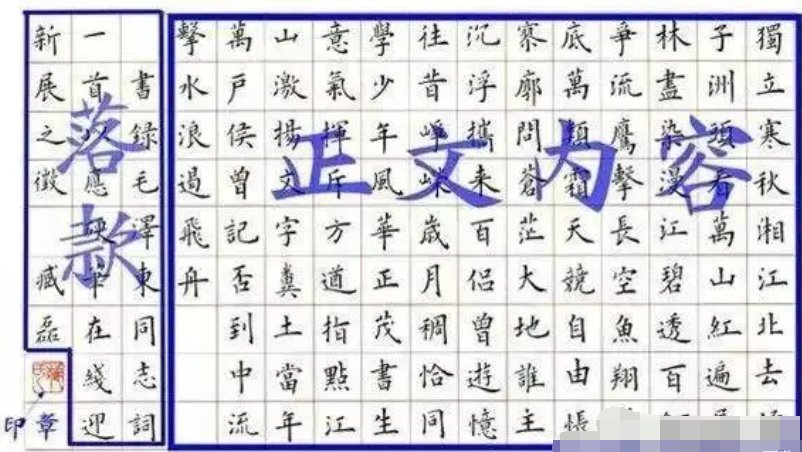 獨立寒秋湘江北去
子洲頭看萬山紅遍
林盡染漫江碧透百
爭流鷹擊長空魚翔
底萬類霜天競自由悵
寥廓問蒼茫大地誰主
沉浮攜来百侶曾遊憶
往昔崢嶸歲月稠恰同
學少年風華正茂書生
意氣揮斥方遒指點江
山激揚文字糞土當年
萬戶侯曾記否到中流
擊水浪遏飛舟
書録毛澤東同志詞
一首以應硬筆在綫迎
新展之徵 臧磊
正文内容
落款
印章